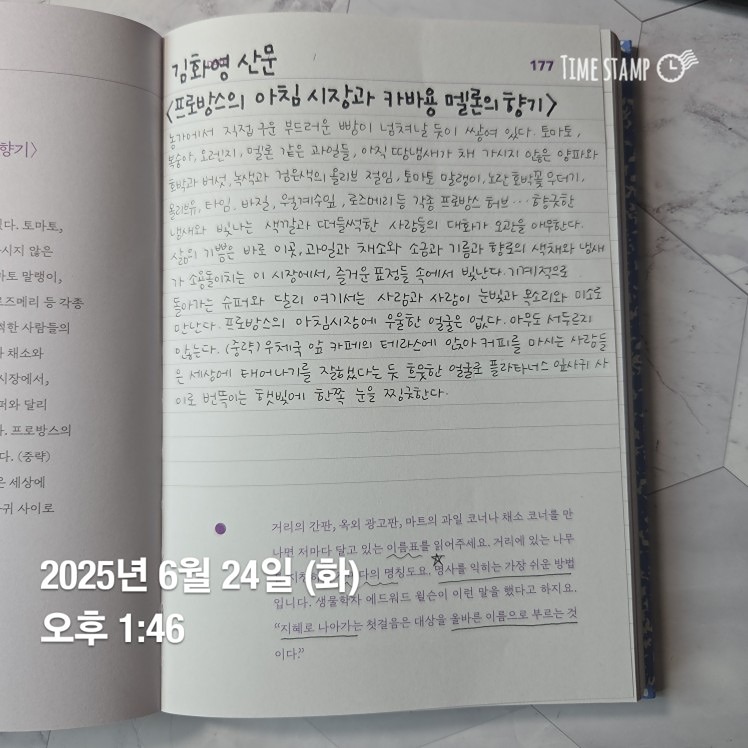 향기〉
다. 토마토,
시지 않은
마토 말랭이,
로즈메리 등 각종
한 사람들의
채소와
시장에서,
퍼와 달리
. 프로방스의
다. (중략)
은 세상에
귀 사이로
177
TIME STAMP
김화영 산문
〈프로방스의 아침 시장과 카바용 멜론의 향기〉
농가에서 직접 구운 부드러운 빵이 넘쳐날 듯이 쌓여 있다. 토마토,
복숭아, 오렌지, 멜론 같은 과일들, 아직 땅냄새가 채 가시지 않은 양파와
호박과 버섯, 녹색과 검은색의 올리브 절임, 토마토 말랭이, 노란 호박꽃 무더기,
올리브유, 타임, 바질, 월계수잎, 로즈메리 등 각종 프로방스 허브… 향긋한
냄새와 빛나는 색깔과 떠들썩한 사람들의 대화가 오관을 애무한다.
삶의 기쁨은 바로 이곳, 과일과 채소와 소금과 기름과 향료의 색채와 냄새
가 소용돌이치는 이 시장에서, 즐거운 표정들 속에서 빛난다. 기계적으로
돌아가는 슈퍼와 달리 여기서는 사람과 사람이 눈빛과 목소리와 미소로
만난다. 프로방스의 아침시장에 우울한 얼굴은 없다. 아무도 서두르지
않는다. (중략) 우체국 앞 카페의 테라스에 앉아 커피를 마시는 사람들
은 세상에 태어나기를 잘했다는 듯 흐뭇한 얼굴로 플라타너스 잎사귀 사
이로 번뜩이는 햇빛에 한쪽 눈을 찡긋한다.
거리의 간판, 옥외 광고판, 마트의 과일 코너나 채소 코너를 만
나면 저마다 달고 있는 이름표를 읽어주세요. 거리에 있는 나무
다의 명칭도요. 명사를 익히는 가장 쉬운 방법
입니다. 생물학자 에드워드 윌슨이 이런 말을 했다고 하지요.
“지혜로 나아가는 첫걸음은 대상을 올바른 이름으로 부르는 것
이다.”
2025년 6월 24일 (화)
오후 1:46